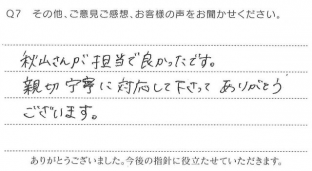 Q7 その他、ご意見ご感想、お客様の声をお聞かせください。
秋山さんが担当で良かったです。
親切丁寧に対応して下さって ありがとう
ございます。
ありがとうございました。今後の指針に役立たせていただきます。